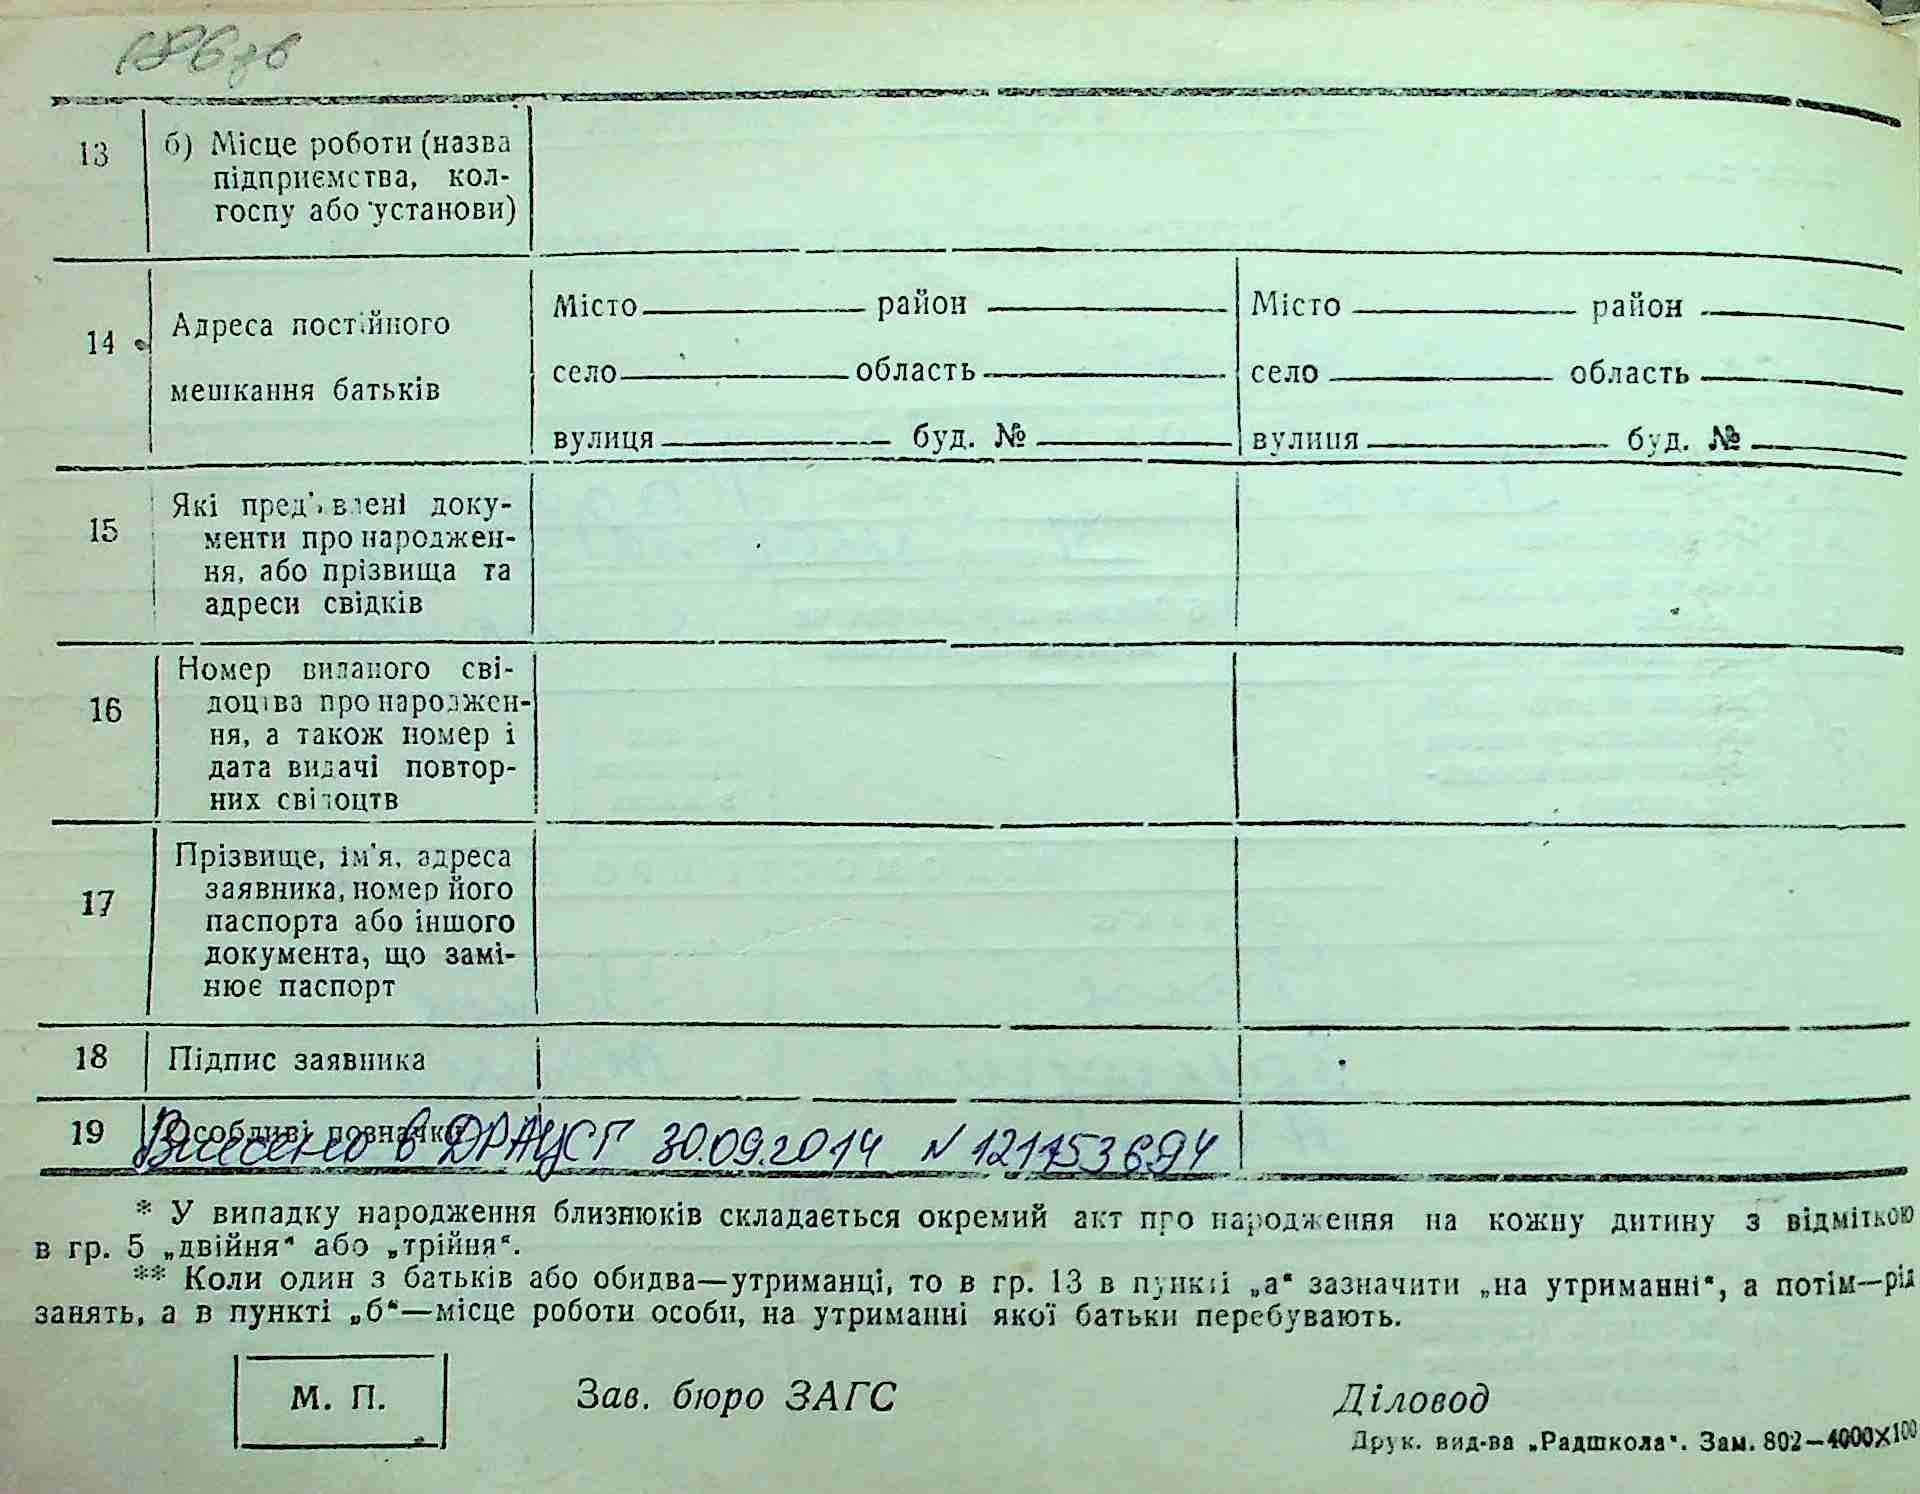 186зв
13 б) Місце роботи (назва
підприємства, кол-
госпу або установи)
14 Адреса постійного
мешкання батьків
Місто район
село область
вулиця буд. №
Місто район
село область
вулиця буд. №
15 Які пред'явлені доку-
менти про народжен-
ня, або прізвища та
адреси свідків
16 Номер виданого сві-
доцтва про народжен-
ня, а також номер і
дата видачі повтор-
них свідоцтв
17 Прізвище, ім'я, адреса
заявника, номер його
паспорта або іншого
документа, що замі-
нює паспорт
18 Підпис заявника
19 Особливі позначки
Внесено в ДРАЦСГ 30.09.2014 N 121153694
* У випадку народження близнюків складається окремий акт про народження на кожну дитину з відміткою
в гр. 5 „двійня“ або „трійня“.
** Коли один з батьків або обидва—утриманці, то в гр. 13 в пункті „а“ зазначити „на утриманні“, а потім—рід
занять, а в пункті „б“—місце роботи особи, на утриманні якої батьки перебувають.
М. П. Зав. бюро ЗАГС Діловод
Друк. вид-ва „Радшкола“. Зам. 802—4000×100